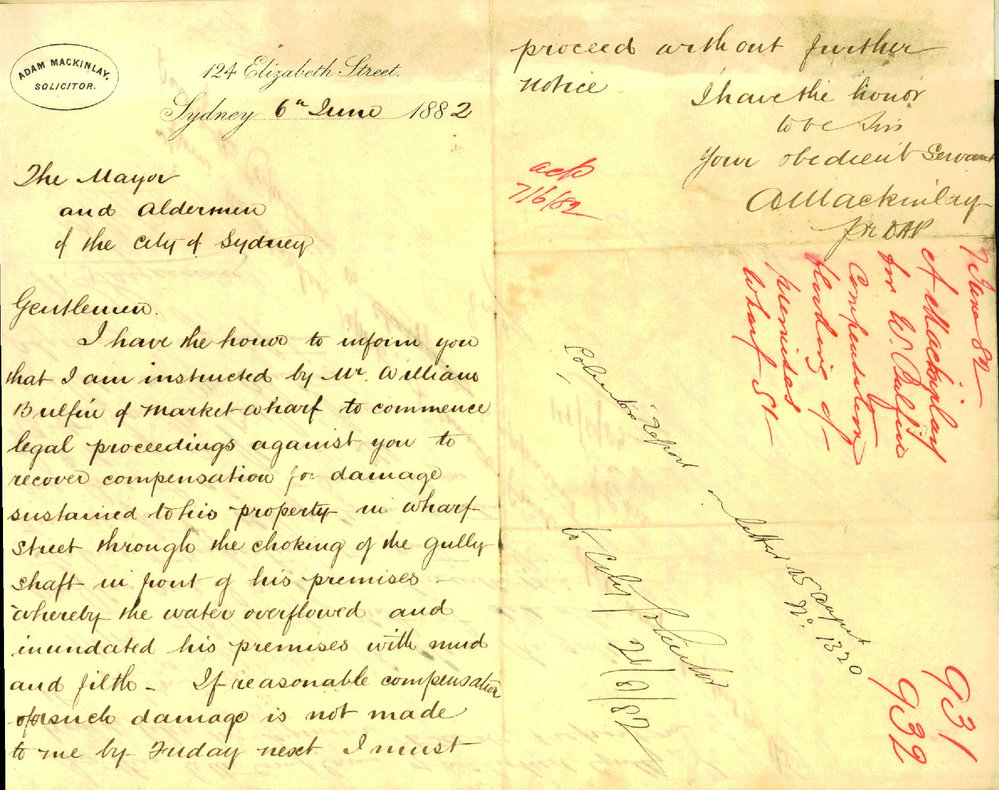 ADAM MACKINLAY.
SOLICITOR.
124 Elizabeth Street.
Sydney 6th June 1882
The Mayor
and Aldermen
of the City of Sydney
Gentlemen.
I have the honor to inform you
that I am instructed by Mr. William
Bulfin of Market Wharf to commence
legal proceedings against you to
recover compensation for damage
sustained to his property in Wharf
Street through the choking of the gully
shaft in front of his premises -
whereby the water overflowed and
inundated his premises with mud
and filth - If reasonable compensation
for such damage is not made
to me by Friday next I must
proceed without further
notice
I have the honor
to be Sirs
Your obedient Servant
A Mackinlay
ack
7/6/82
7 June 82
A Mackinlay
for W. Bulfin
Compensation
flooding of
premises
Wharf St -
Solicitor's report
letter 15 August
No. 1320
to City Solicitor
21/6/82
931
932